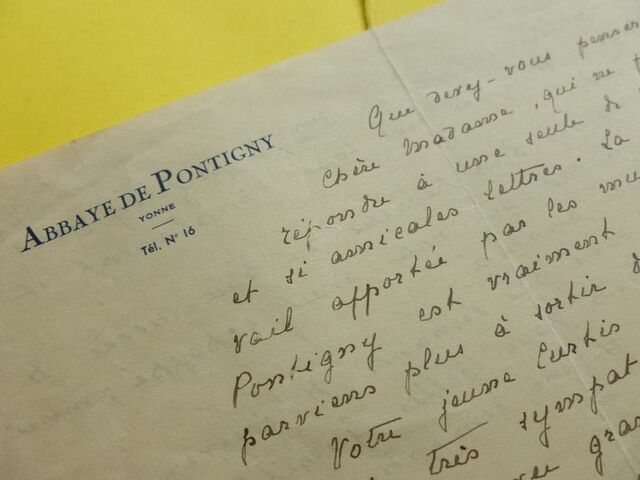 ABBAYE DE PONTIGNY
YONNE
Tél. N° 16
Que devez-vous penser
Chère Madame, qui ne
répondre à une seule de
et si amicales lettres. La
vail apportée par les
Pontigny est vraiment
parviens plus à sortir
Votre jeune Curtis
très sympat
gran